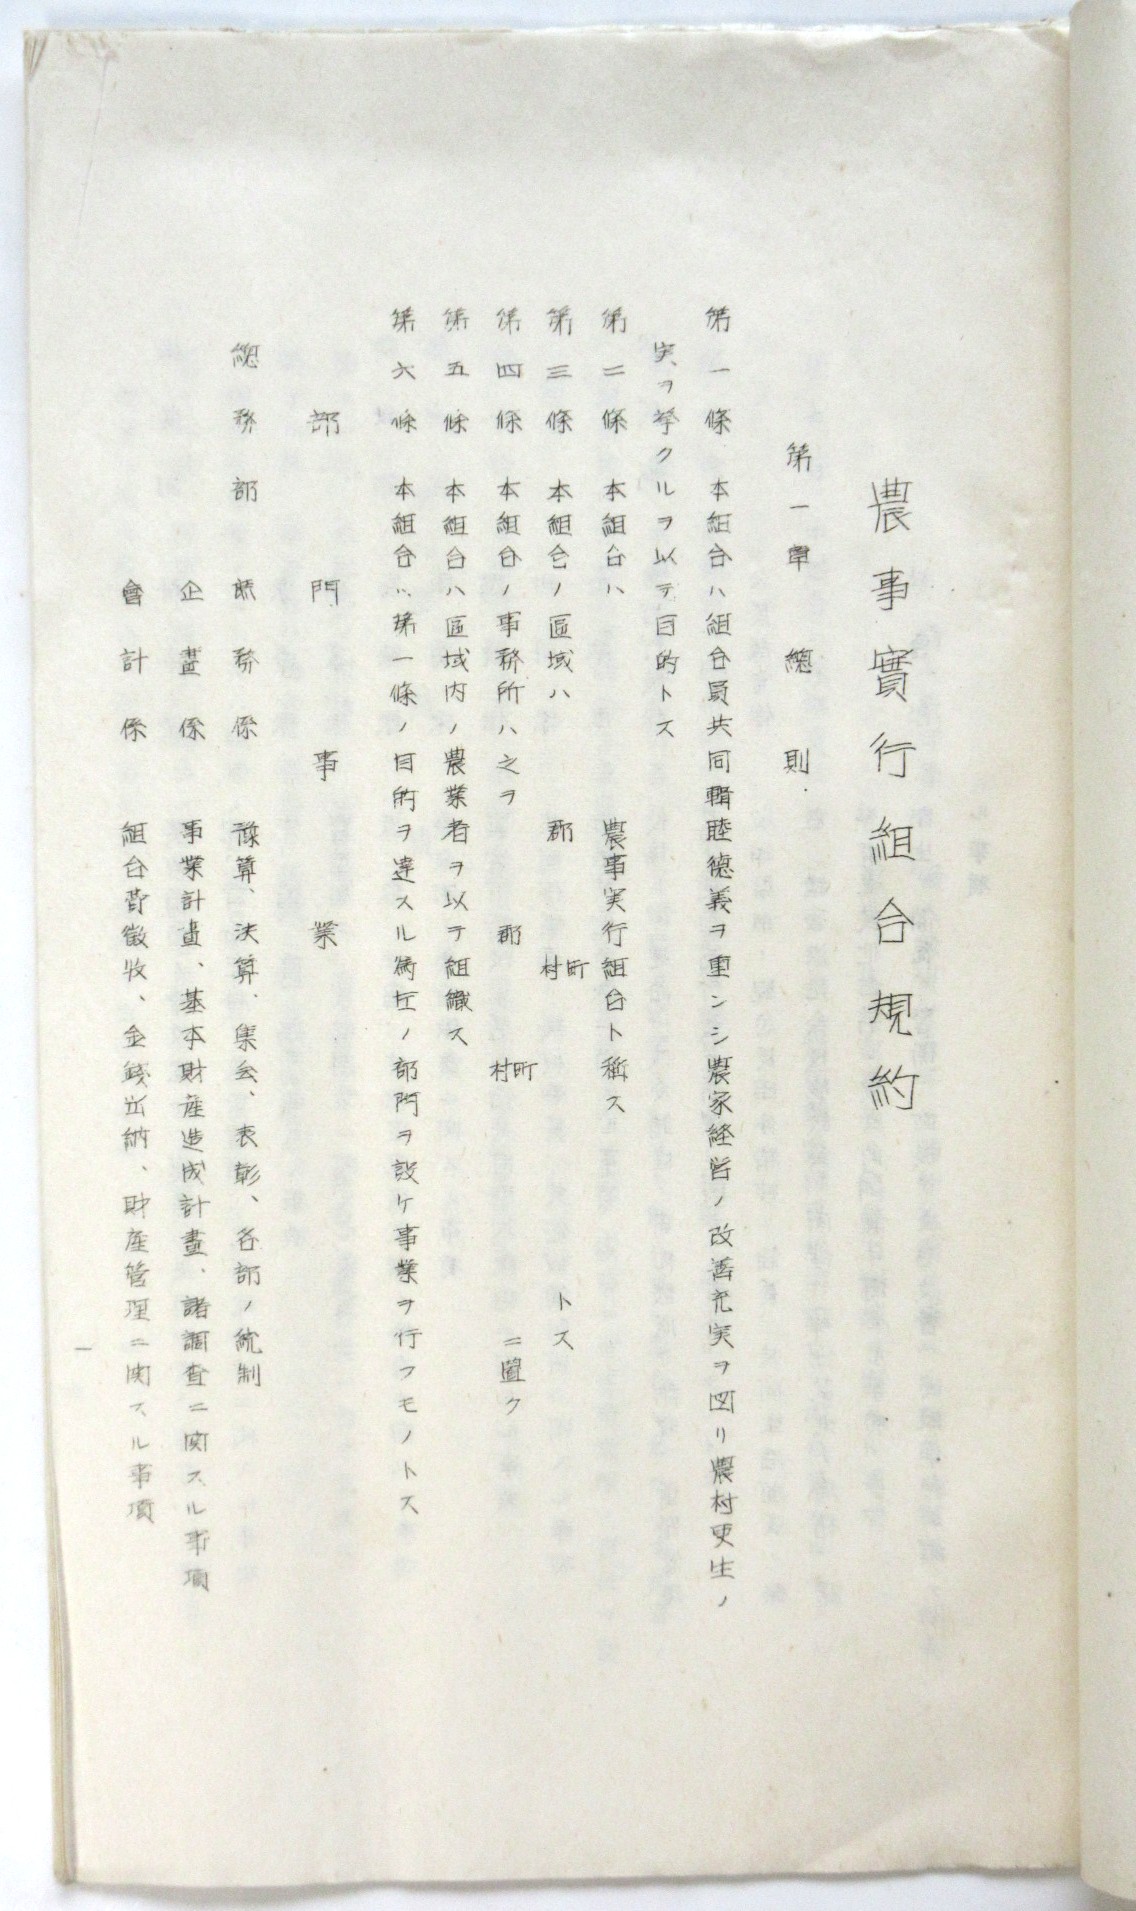 農事實行組合規約
第一章 總則
第一條 本組合ハ組合員共同輯睦德義ヲ重ンシ農家経営ノ改善充実ヲ図リ農村更生ノ
実ヲ挙クルヲ以テ目的トス
第二條 本組合ハ 農事実行組合ト稱ス
第三條 本組合ノ區域ハ 郡 町村 トス
第四條 本組合ノ事務所ハ之ヲ 郡 町村 ニ置ク
第五條 本組合ハ區域内ノ農業者ヲ以テ組織ス
第六條 本組合ハ第一條ノ目的ヲ達スル為左ノ部門ヲ設ケ事業ヲ行フモノトス
部門 事業
總務部 庶務係 豫算、決算、集会、表彰、各部ノ統制
企畫係 事業計畫、基本財産造成計畫、諸調査ニ関スル事項
會計係 組合費徴收、金銭出納、財産管理ニ関スル事項
一